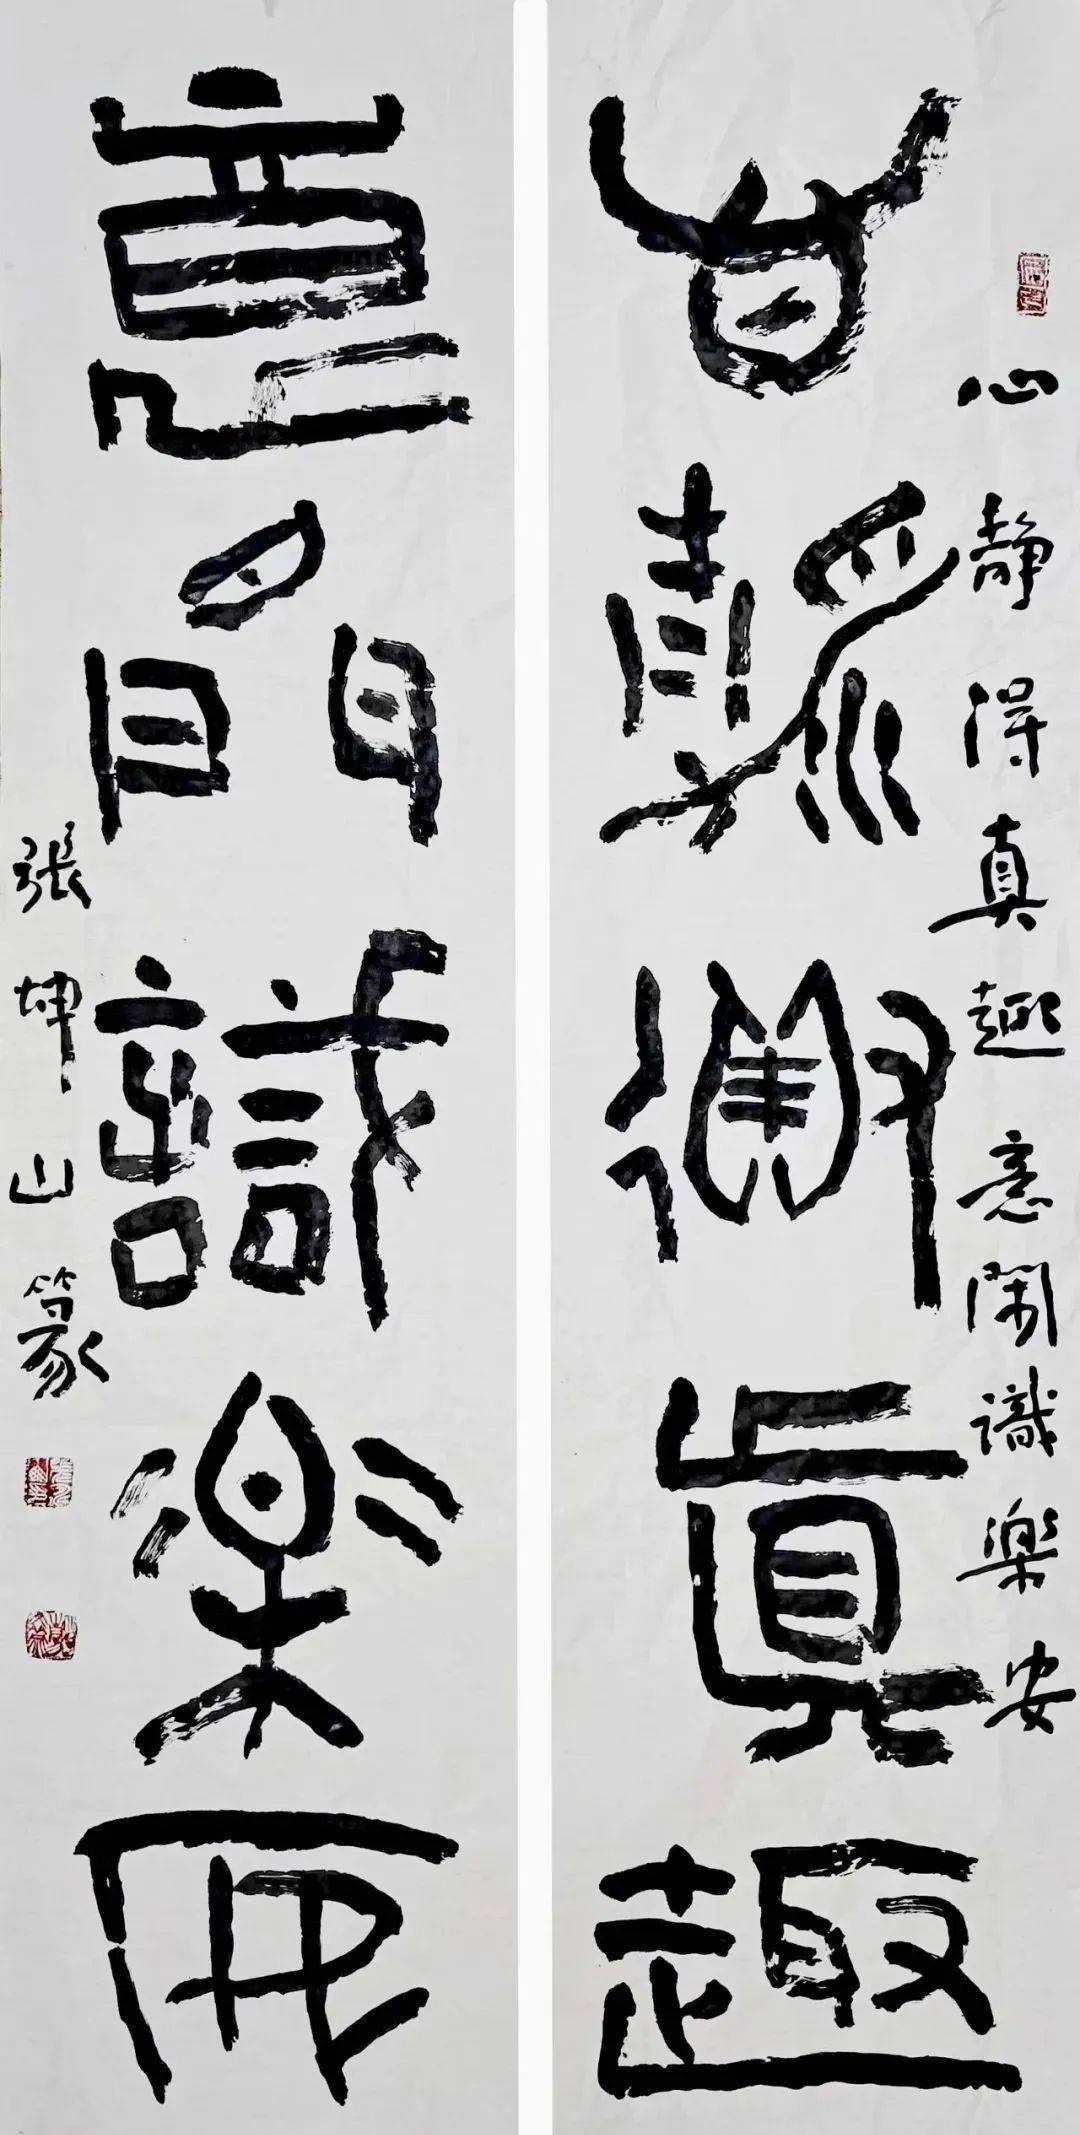 心静得真趣意閑識樂安
心靜得眞趣
意閒識樂安
張坤山篆